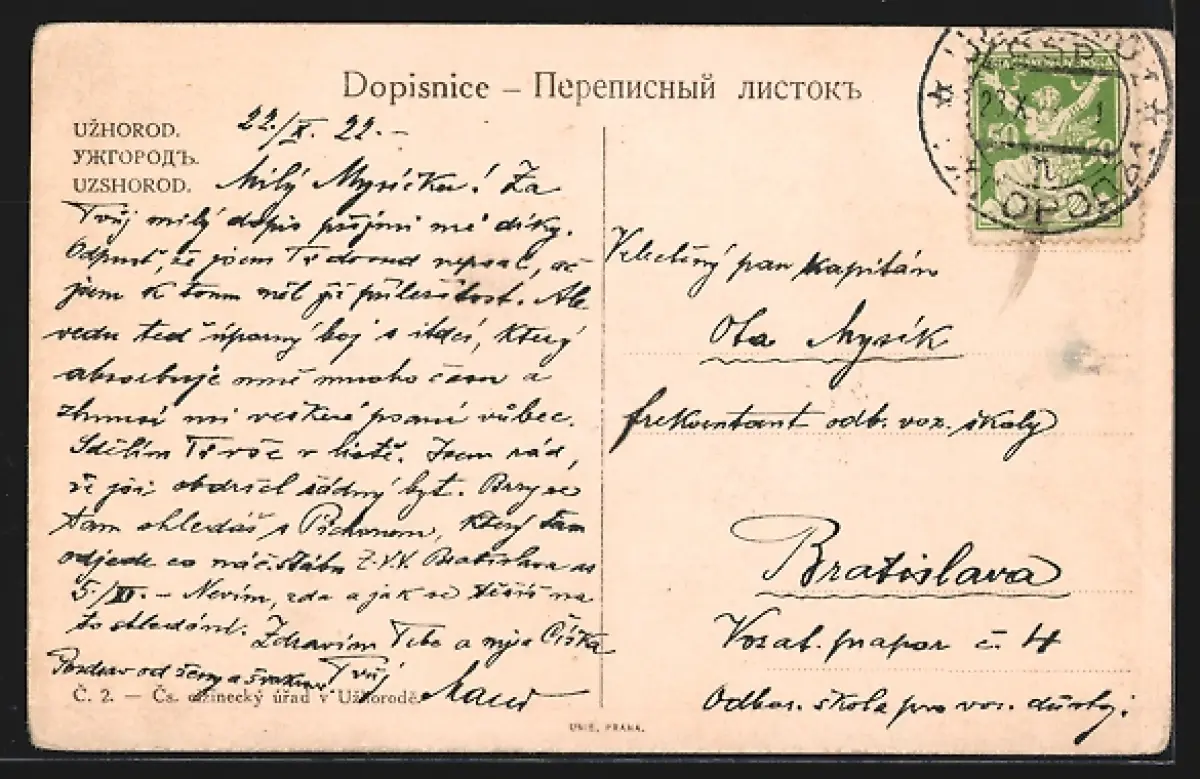 Dopisnice – Переписный листокъ
UŽHOROD.
УЖГОРОДЪ.
UZSHOROD.
22./X. 22.-
Milý Mysíčku! Za
Tvůj milý dopis přijmi mé díky.
Odpusť, že jsem Ti dosud nepsal, ač
jsem k tomu měl již příležitost. Ale
vedu teď úporný boj s, který
absorbuje mně mnoho času a
mi veškeré psaní vůbec.
Sdělím Ti více v listě. Jsem rád,
že jsi obdržel řádný byt. Brzy se
tam shledáš s Pichonem, který tam
odjede co náč. štábu Z.V.V. Bratislava as
5./XI. - Nevím, zda a jak se těšíš na
to shledání. Zdravím Tebe a
Pozdrav od ženy a Tvůj
Č. 2. — Čs. osžinecký úřad v Užhorodě.
UNIE, PRAHA.
ČSP
23.X.
50 50
Velectěný pan kapitán
Ota Mysík
frekventant odb. voz. školy
Bratislava
Vozat. prapor č. 4
Odbor. škola pro voz. důstoj.